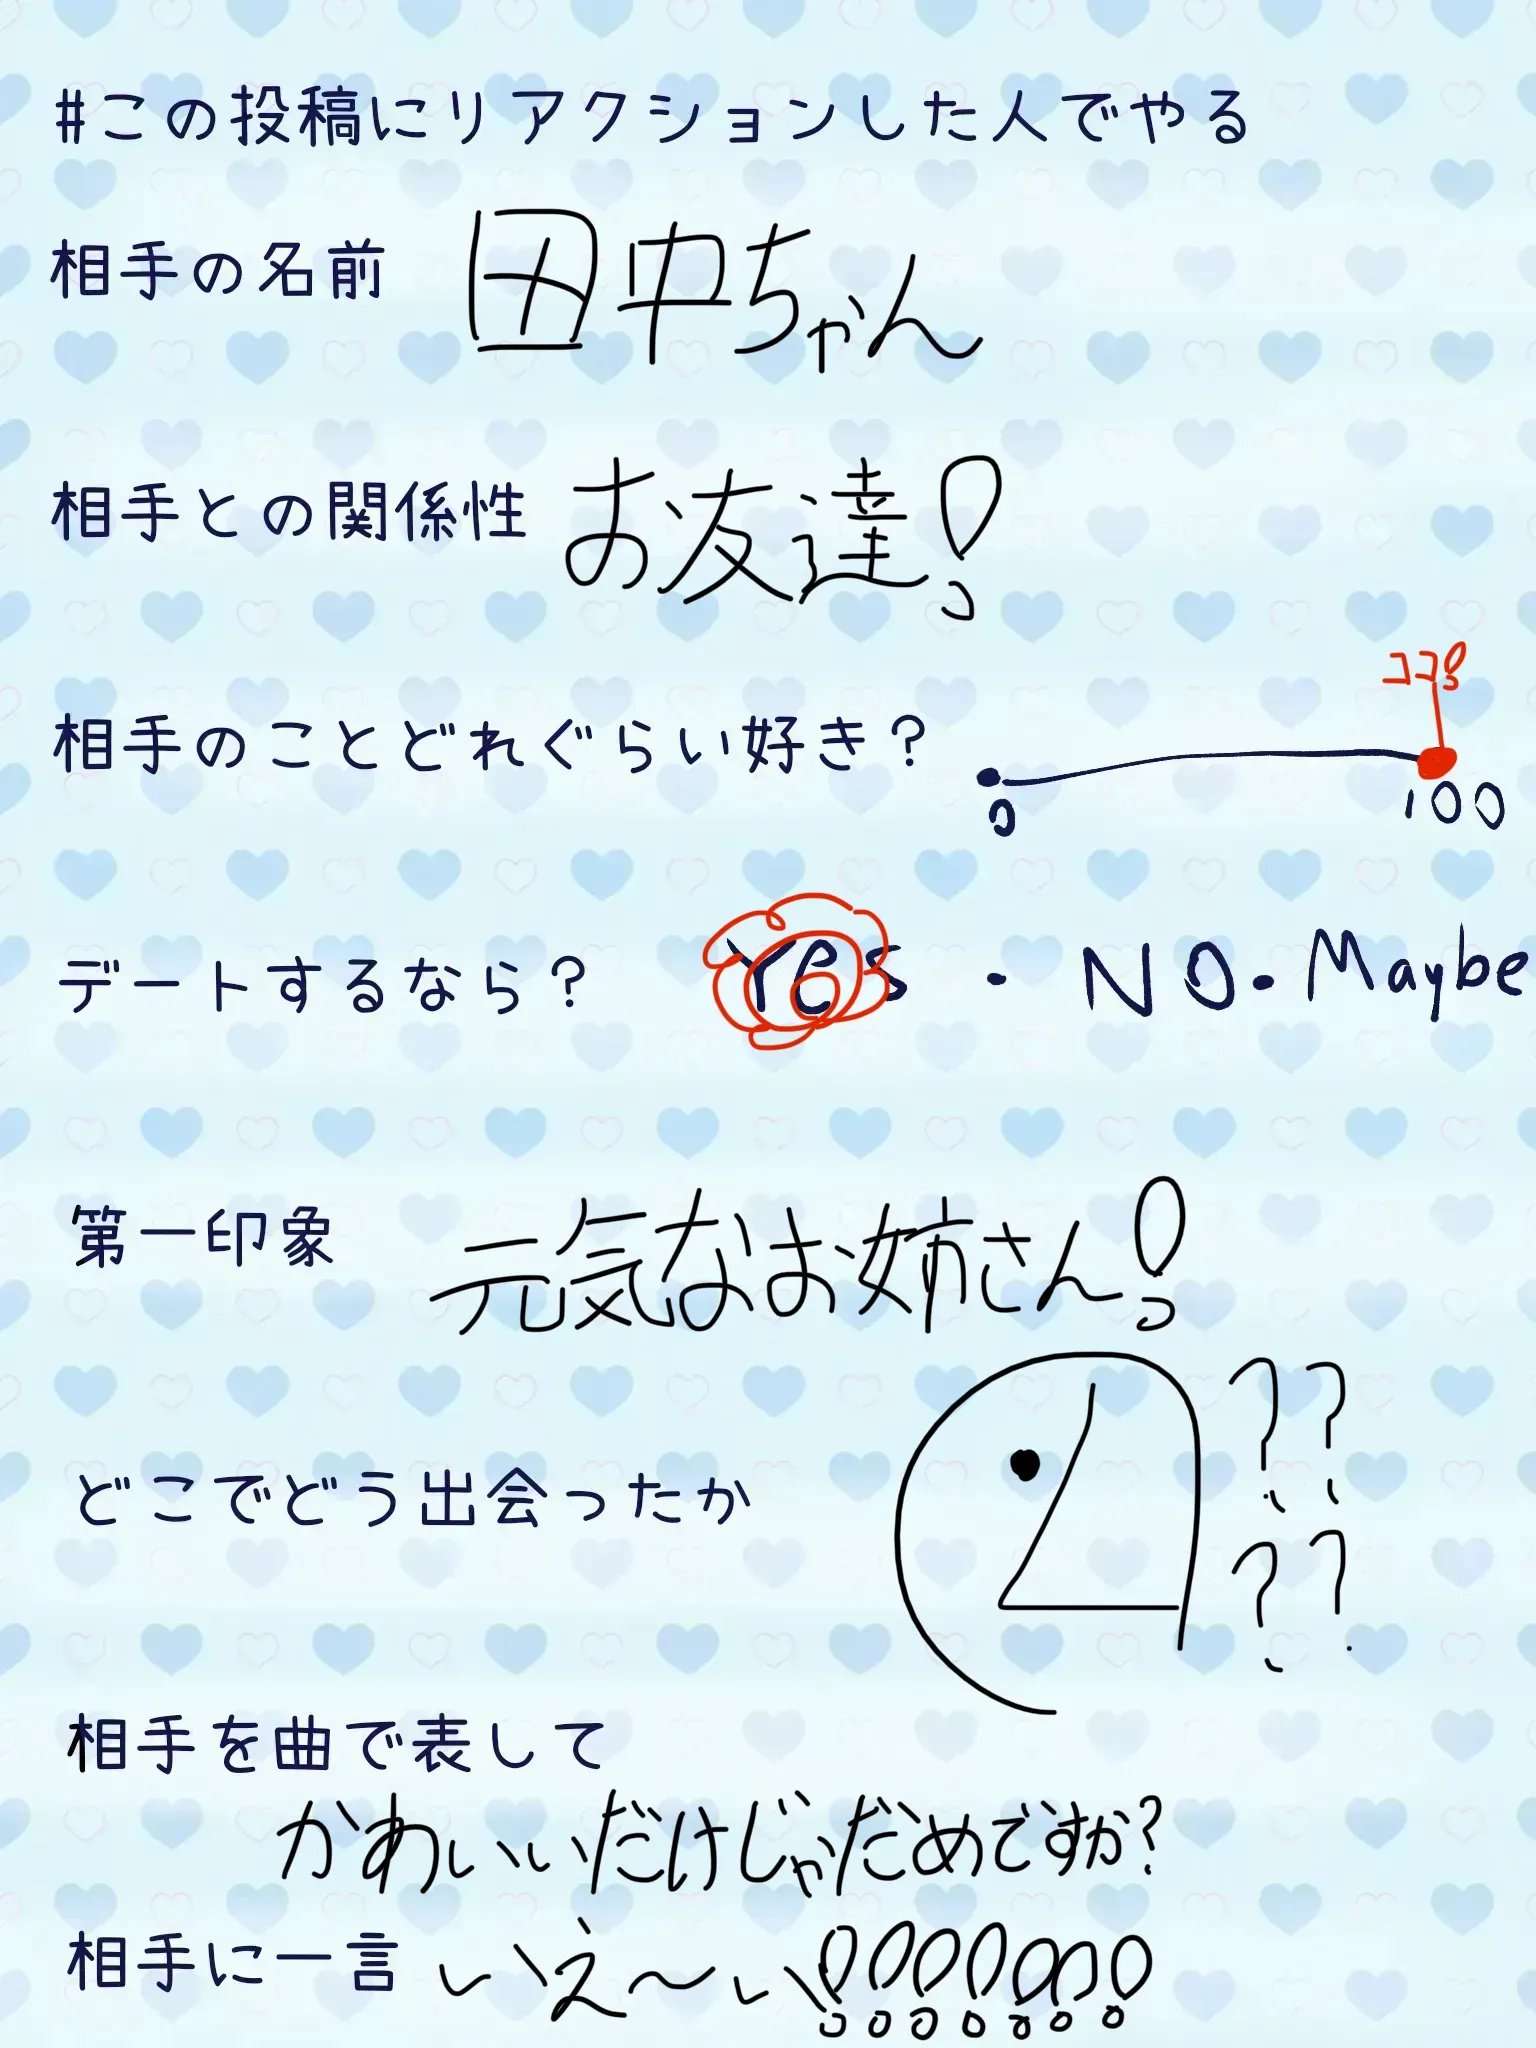 #この投稿にリアクションした人でやる
相手の名前 田中ちゃん
相手との関係性 お友達!
ココ!
相手のことどれぐらい好き? 0 100
デートするなら? Yes・NO・Maybe
第一印象 元気なお姉さん!
どこでどう出会ったか ????
相手を曲で表して
かわいいだけじゃだめですか?
相手に一言 いえ〜い!!!!!!!